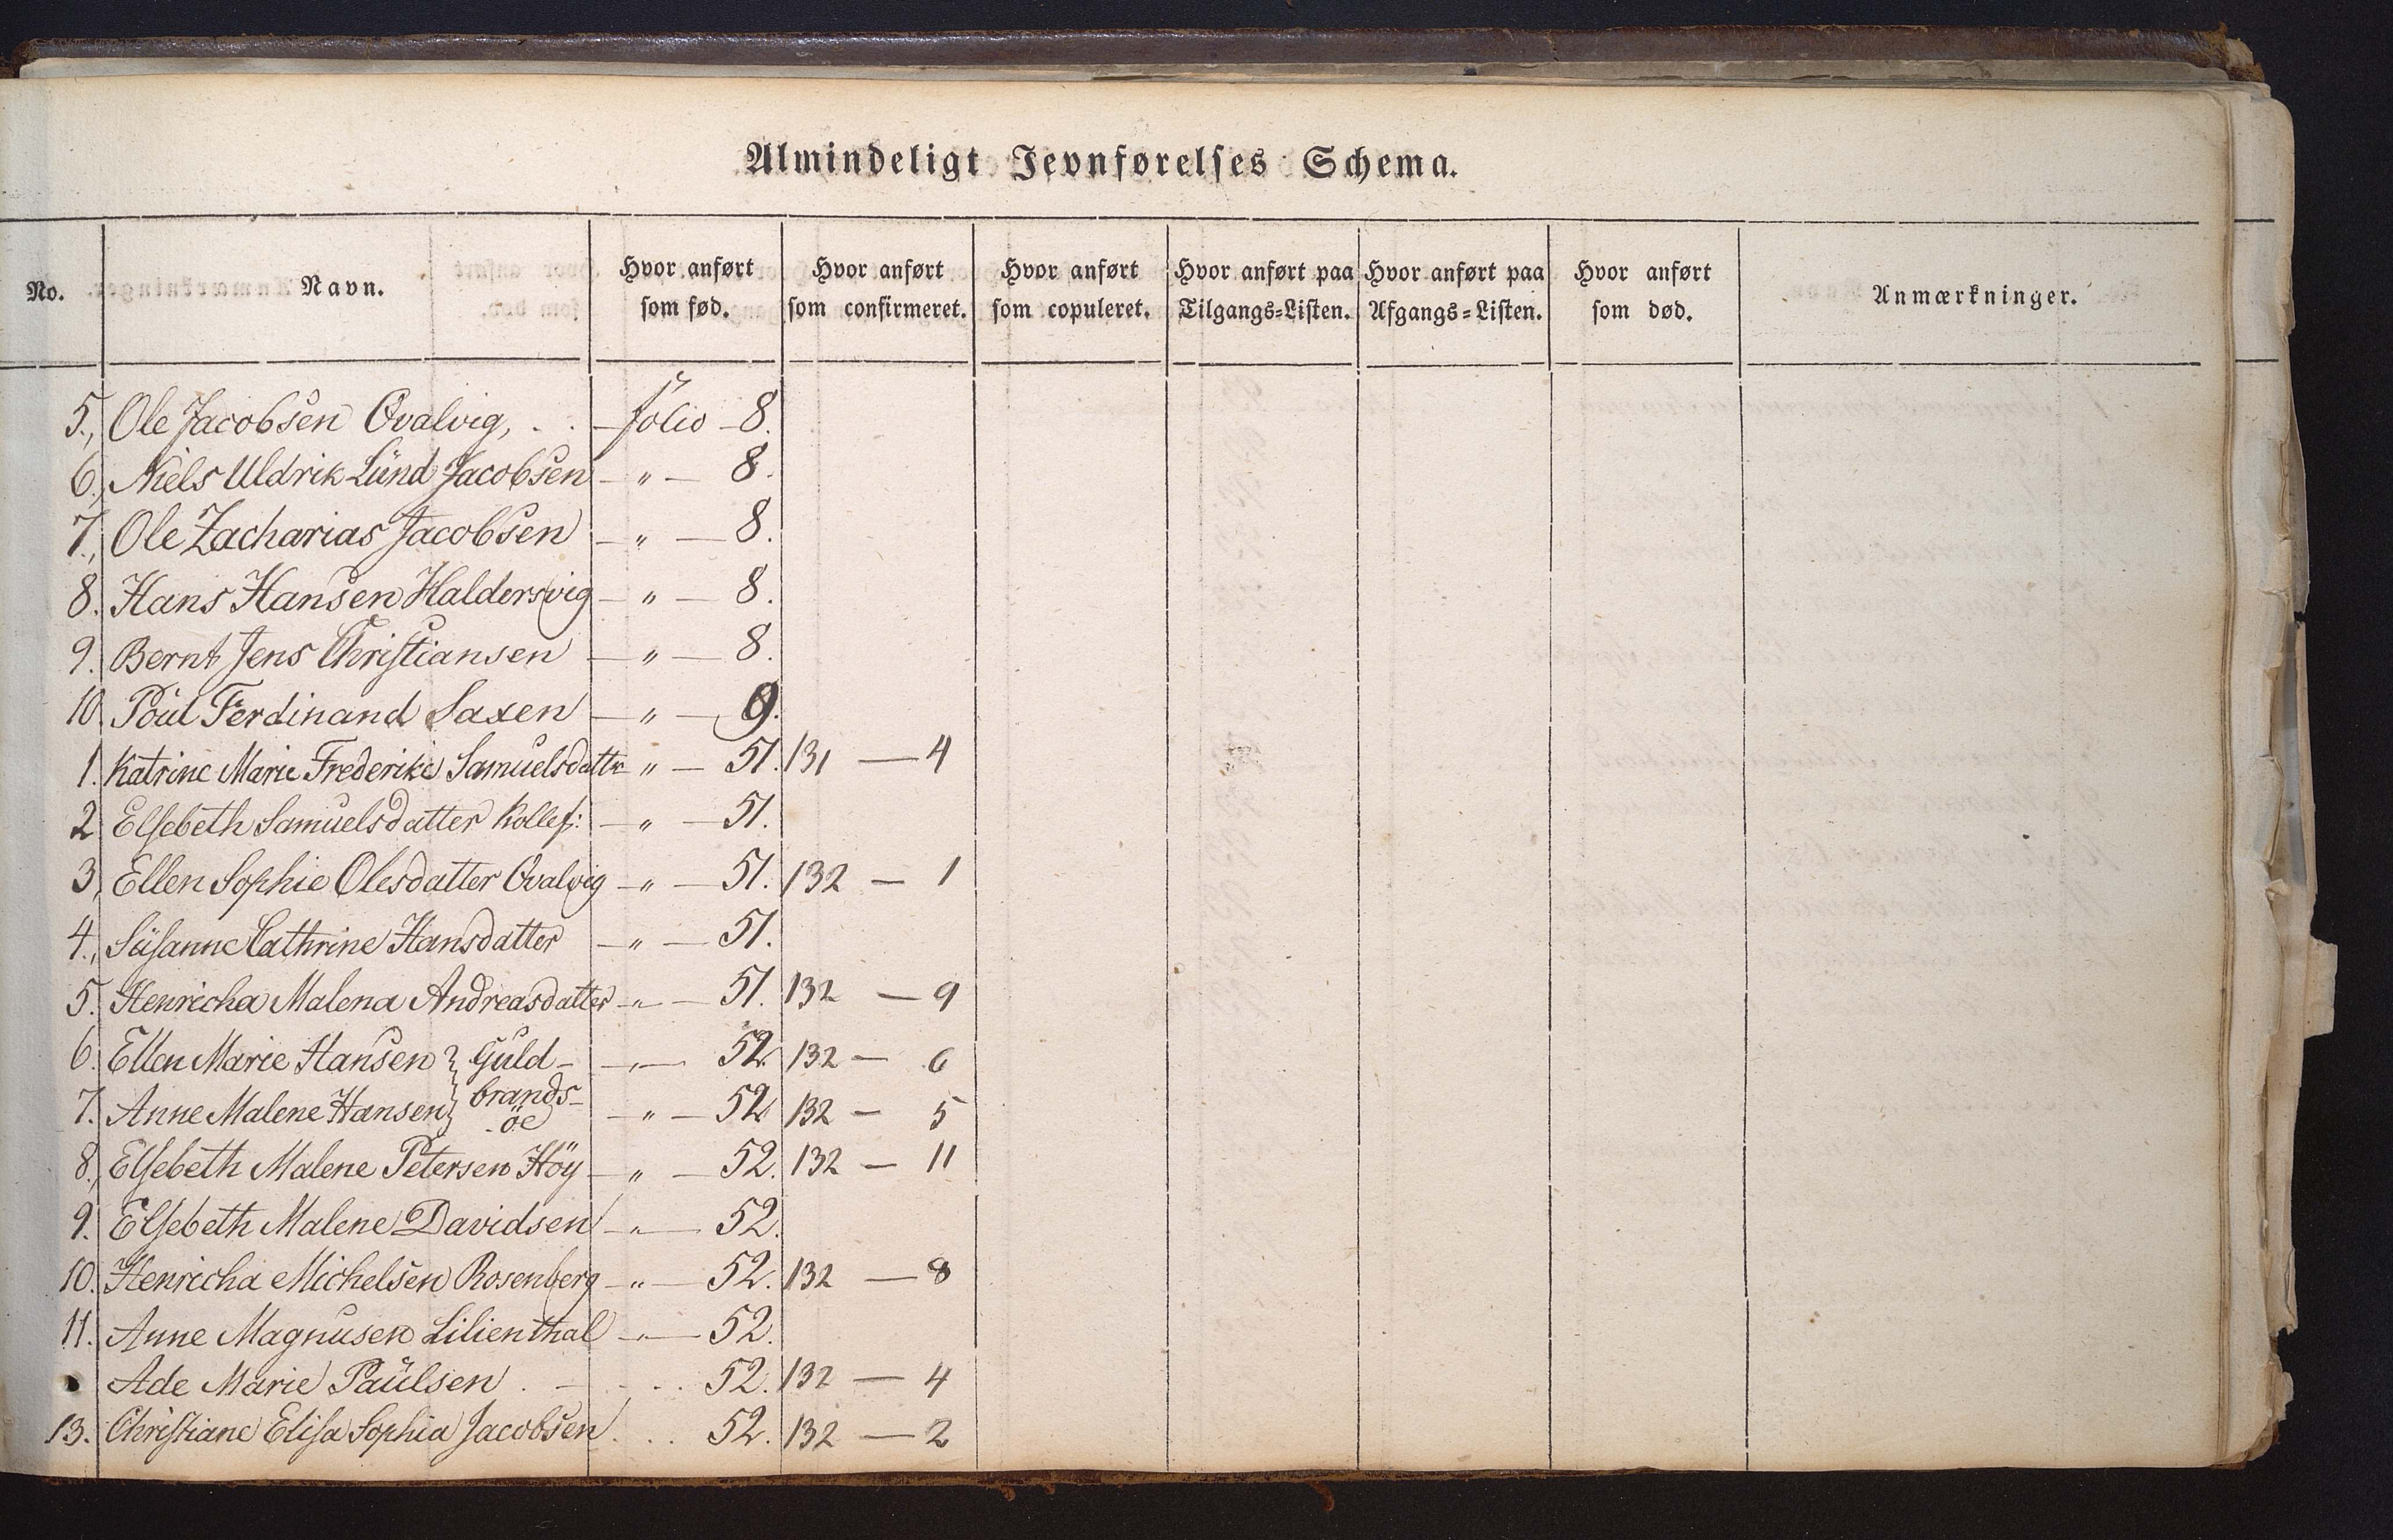 Almindeligt Jevnførelses Schema.
No. Navn. Hvor anført som fød. Hvor anført som confirmeret. Hvor anført som copuleret. Hvor anført paa Tilgangs=Listen. Hvor anført paa Afgangs=Listen. Hvor anført som død. Anmærkninger.
5., Ole Jacobsen Qvalvig, . . — folio — 8.
6., Niels Uldrik Lund Jacobsen — " — 8.
7., Ole Zacharias Jacobsen — " — 8.
8. Hans Hansen Haldersvig — " — 8.
9. Bernt Jens Christiansen — " — 8.
10. Poul Ferdinand Saxen — " — 9.
1. Katrine Marie Frederike Samuelsdatter " — 51. 131 — 4
2. Elsebeth Samuelsdatter Kollef: — " — 51.
3, Ellen Sophie Olesdatter Qvalvig — " — 51. 132 — 1
4., Susanne Cathrine Hansdatter — " — 51.
5. Henricha Malena Andreasdatter — " — 51. 132 — 9
6. Ellen Marie Hansen } Guld- — " — 52. 132 — 6
7. Anne Malene Hansen } brands- öe — " — 52. 132 — 5
8., Elsebeth Malene Petersen Höy — " — 52. 132 — 11
9. Elsebeth Malene Davidsen — " — 52.
10. Henricha Michelsen Rosenberg — " — 52. 132 — 8
11. Anne Magnusen Lilienthal — " — 52.
Ade Marie Paulsen . — . . . 52. 132 — 4
13. Christiane Elisa Sophia Jacobsen . . . 52. 132 — 2